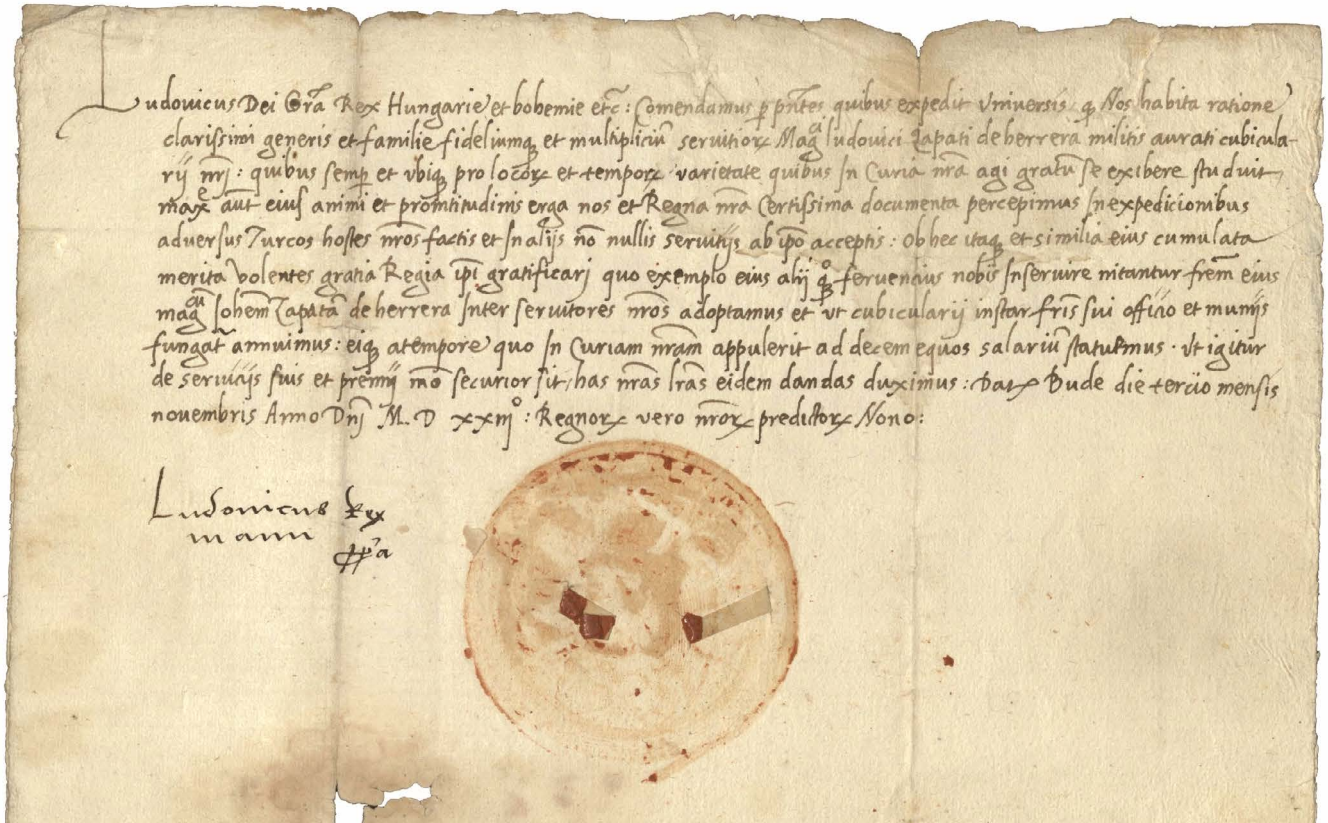 Ludovicus Dei Gr̄a Rex Hungarie et bohemie etc̄: Comendamus ꝑ pn̄tes quibus expedit Vniversis ꝙ Nos habita ratione
clarissimi generis et familie fideliumqꝫ et multipliciū servitioꝝ Mag^ci ludovici Zapati de herrera militis aurati cubicula-
rij nr̄j: quibus semꝑ et vbiqꝫ pro locoꝝ et tempoꝝ varietate quibus In Curia nr̄a agi gratū se exibere studuit,
max^e aūt eius animi et promtitudinis erga nos et Regna nr̄a Certissima documenta percepimus In expedicionibus
adversus Turcos hostes nr̄os factis et In alijs nō nullis servitijs ab ip̄o acceptis: Ob hec itaqꝫ et similia eius cumulata
merita Volentes gratia Regia ip̄i gratificarj quo exemplo eius alij ꝙ^o fervencius nobis Inservire nitantur frēm eius
mag^cu Iohēm Zapatā de herrera Inter servitores nr̄os adoptamus et vt cubicularij instar fr̄is sui officio et munijs
fungat̄ annuimus: eiqꝫ a tempore quo In Curiam nr̄am appulerit ad decem equos salariū statuimus. Vt igitur
de servicijs suis et premij mō securior sit, has nr̄as lr̄as eidem dandas duximus: Datꝝ Bude die tercio mensis
novembris Anno Dn̄j M. D xxiij^o: Regnoꝝ vero nr̄oꝝ predictoꝝ Nono:
Ludovicus Rex
manu
pp̄a